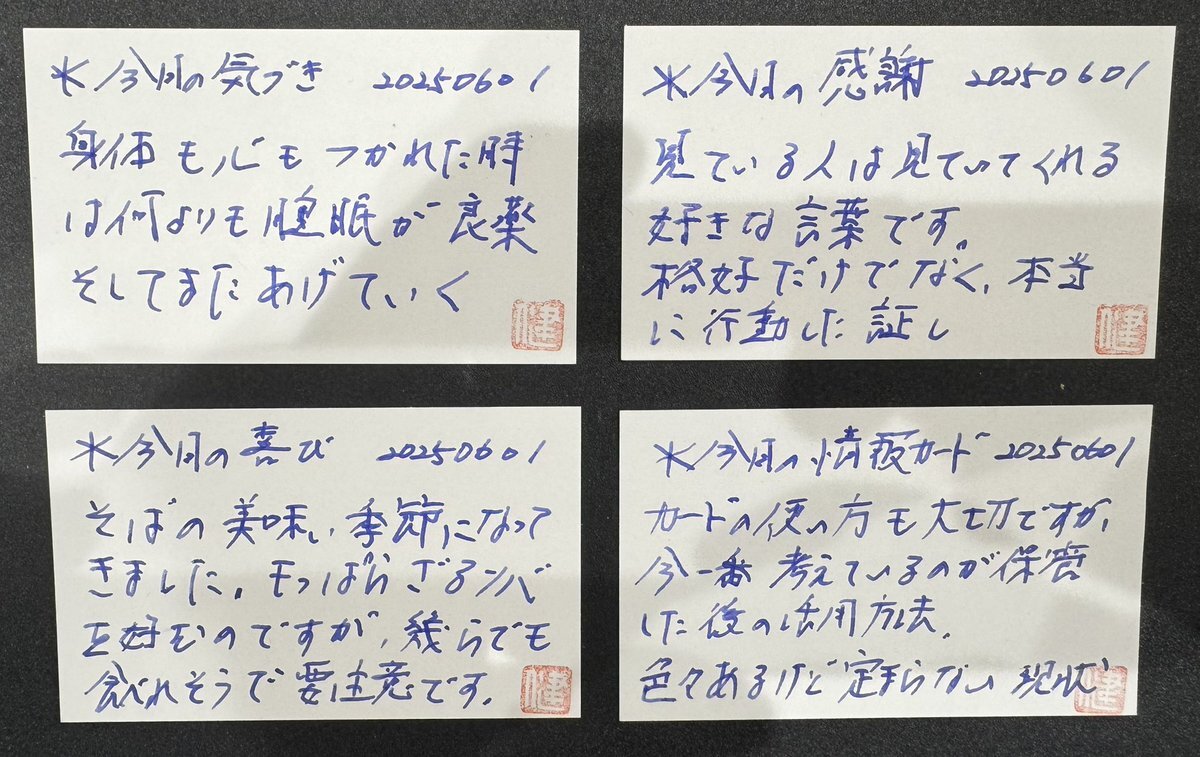 *今月の気づき 20250601
身体も心もつかれた時
は何よりも睡眠が良薬
そしてまたあげていく
健
*今月の感謝 20250601
見ている人は見ていてくれる
好きな言葉です。
格好だけでなく、本当
に行動した証し
健
*今月の喜び 20250601
そばの美味しい季節になって
きました。もっぱらざるソバ
を好むのですが、幾らでも
食べれそうで要注意です。
健
*今月の情報カード 20250601
カードの使い方も大切ですが、
今一番考えているのが保管
した後の活用方法。
色々あるけど定まらない現状
健